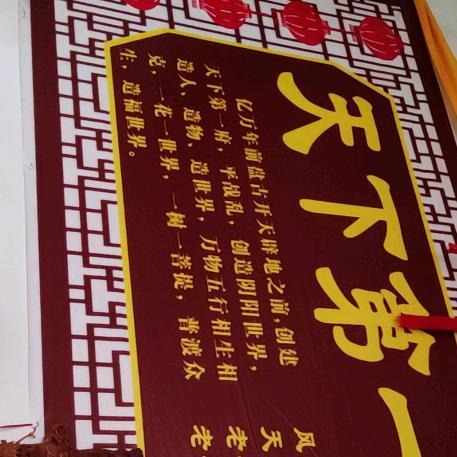 天下第一
亿万年前盘古开天辟地之前,创建
天下第一府,平战乱,创造阴阳世界,
造人、造物、造世界,万物五行相生相
克,一花一世界,一树一菩提,普渡众
生,造福世界。
凤
天
老
老